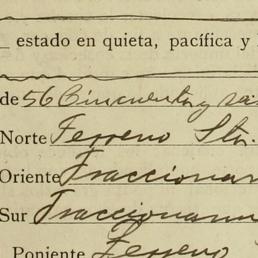 estado en quieta, pacífica y
de 56 Cincuenta y
Norte Terreno Sta.
Oriente
Sur
Poniente Terreno